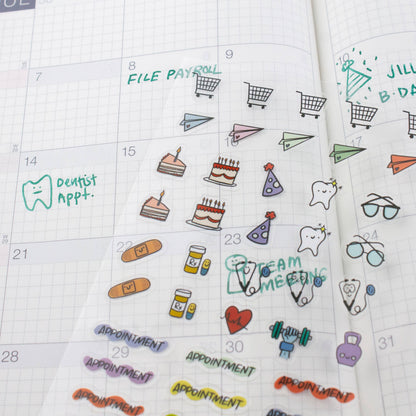 UL
7
8
9
10
FILE PAYROLL
JILL
B-DA
14
15
16
Dentist
Appt.
21
22
23
24
TEAM
MEETING
28
29
30
31
APPOINTMENT
APPOINTMENT
APPOINTMENT
APPOINTMENT
APPOINTMENT
APPOINTMENT
APPOINTMENT